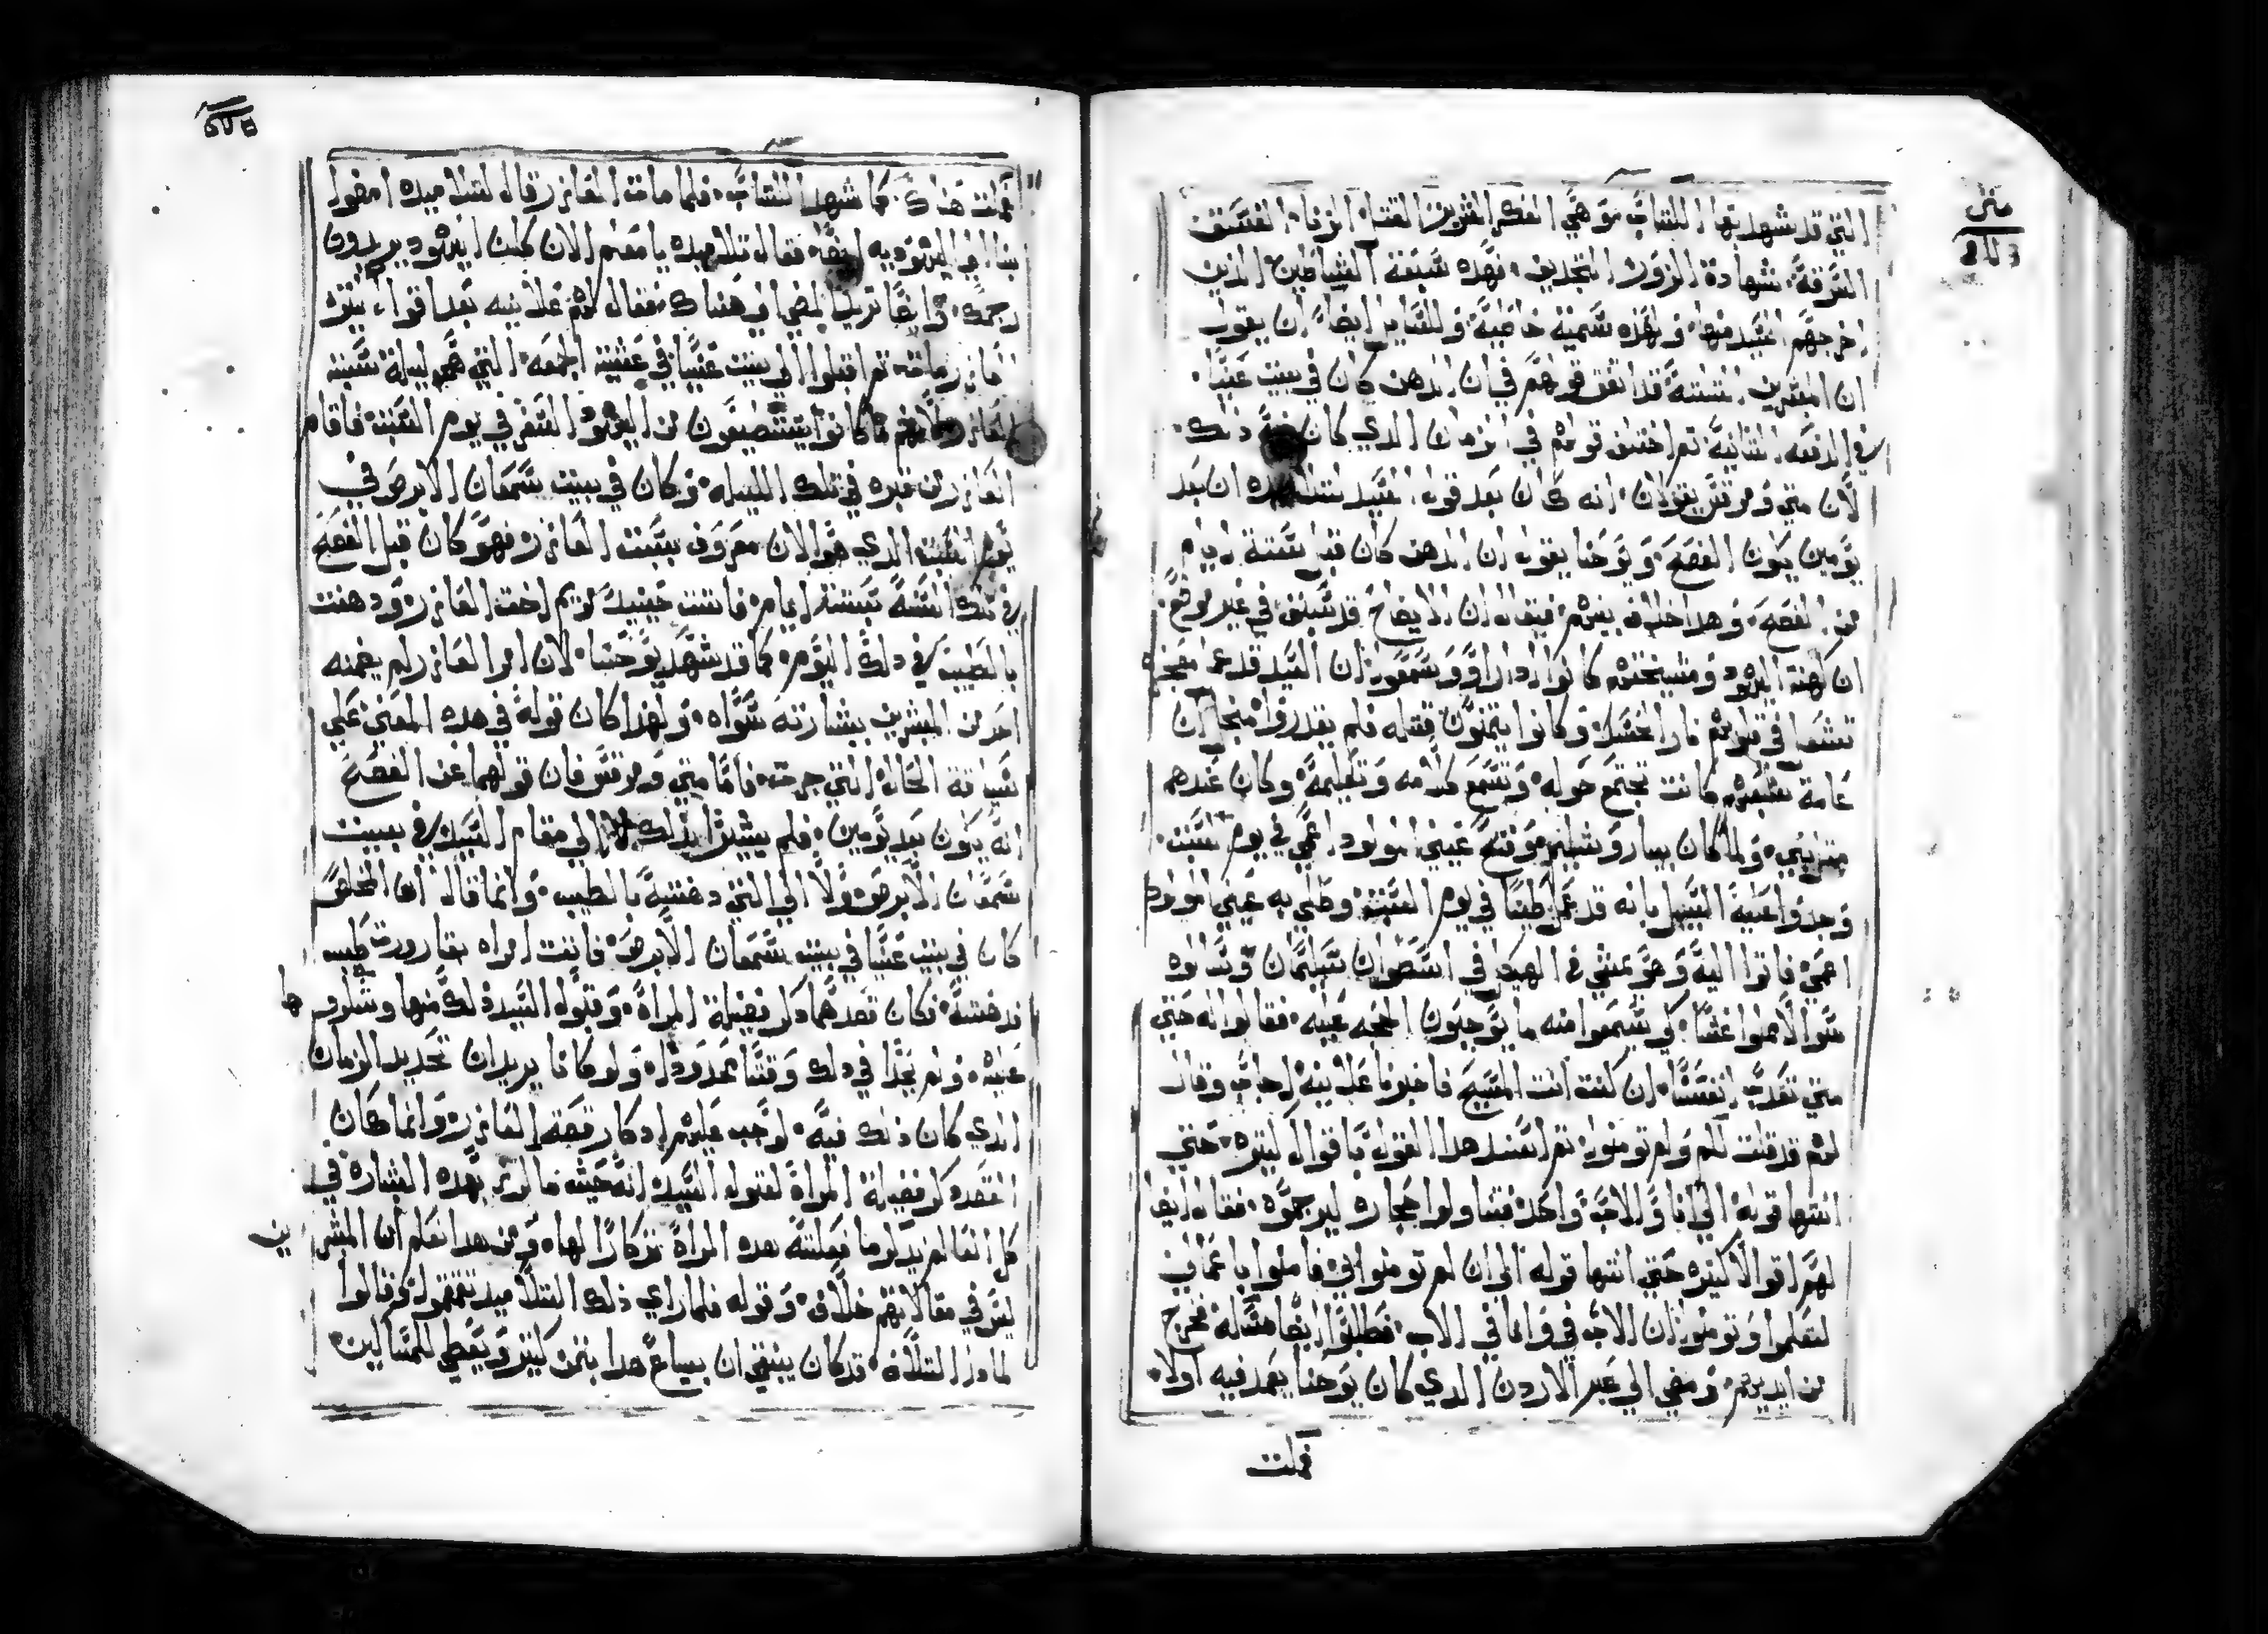 متي
التي قد شهد بها الكتاب وهي الفكر الشرير القتل الزنا الفسق
السرقة شهادة الزور التجديف فهده سبعة الشياطين الدين
اخرجهم السيد منها ولهذه سميت خاطية وللقايل ايضا ان يقول
ان المبشرين الثلثة قد اتفق قولهم في ان الدهن كان في بيت عنيا
في الدفعه الثانية ثم اختلف قولهم في الزمان الدي كان فيه ذلك
لان متي ومرقس يقولان انه كان بعد قول السيد لتلاميده ان بعد
يومين يكون الفصح ويوحنا يقول ان الدهن كان قبل بستة ايام
من الفصح وهدا خلاف بينهم فيقال ان الايضاح قد سبق في غير موضع
ان كهنة اليهود ومشيختهم كانوا ادا راوا وسمعوا ان السيد قد عمل معجز
تشعل في قلوبهم نار الحسد وكانوا يتمنون قتله فلم يقدروا من اجل ان
عامة شعبهم كانت تجتمع حوله وتسمع كلامه وتعليمة وكان عندهم
مثل نبي ولما كان بيار وشليم وفتح عيني المولود اعمي في يوم السبت
وجدوا عليه السبيل بانه قد عمل طينا في يوم السبت وطلي به عيني المولود
اعمي فاتوا اليه وهو يمشي في الهيكل في اسطوان سليمان وسالوه
سوالا مملوا غشا كي يسمعوا منه ما يوجبون الحجه عليه فقالوا له حتي
متي تعدب انفسنا ان كنت انت المسيح فاخبرنا علانيه اجاب وقال
لهم قد قلت لكم ولم تومنوا ثم اسند هدا القول باقوال كثيرة حتي
انتها قوله الي انا والاب واحد فتناولوا حجارة ليرجموه فقال ايضا
لهم اقوالا كثيره حتي انتها قوله الي ان لم تومنوا بي فامنوا باعمالي
لتعلموا وتومنوا ان الاب في وانا في الاب فطلبوا ايضا مسكه فخرج
من ايديهم ومضي الي عبر الاردن الدي كان يوحنا يعمد فيه اولا
فمكث
فمكث هناك كما شهد الكتاب فلما مات العازر قال لتلاميده امضوا
بنا الي اليهوديه ايضا فقال تلاميده يا معلم الان كان اليهود يريدون
رجمك وايضا تريد المضي الي هناك فقال لهم علانيه بعد اقوال كثيرة
العازر مات ثم اقبلوا الي بيت عنيا في عشية الجمعه التي هي ليلة سبت
العازر لانهم ما كانوا يستطيعون من اليهود السفر في يوم السبت فاقام
العازر من قبره في تلك الليله وكان في بيت سمعان الابرص في
يوم السبت الدي هو الان معروف بسبت العازر فهو كان قبل الفصح
في تلك السنة بستة ايام فاتت حينيد مريم اخت العازر ودهنت
بالطيب في دلك اليوم كما قد شهد يوحنا لان امر العازر لم يضمنه
احد من المبشرين بشارته سواه ولهدا كان قوله في هده المعني علي
سياقة الحال التي جرت فاما متي ومرقس فان قولهما عن الفصح
انه يكون بعد يومين فلم يشيرا بدلك الي مقام السيد في بيت
سمعان الابرص ولا الي التي دهنته بالطيب وانما قال لما المخلص
كان في بيت عنيا في بيت سمعان الابرص فاتت امراه بقارورة طيب
فدهنته فكان قصدهما دكر فضيلة المراة وقبول السيد دلك منها وشكرها
عليه ولم يحدا في دلك وقتا محدودا ولو كانا يريدان تحديد الزمان
الدي كان ذلك فيه لوجب عليهم ادكار قصة العازر وانما كان
القصد دكر فضيلة المراة لقول السيد انه حيث ما كرز بهده البشاره في
كل العالم يدكر ما فعلته هده المراة تدكارا لها ومن هدا نعلم ان المبشرين
ليس في مقالاتهم خلاف وقوله فلما راي ذلك التلاميد تقمقموا وقالوا
لماذا التلاف قد كان ينبغي ان يباع هدا بثمن كثير ويعطي للمساكين